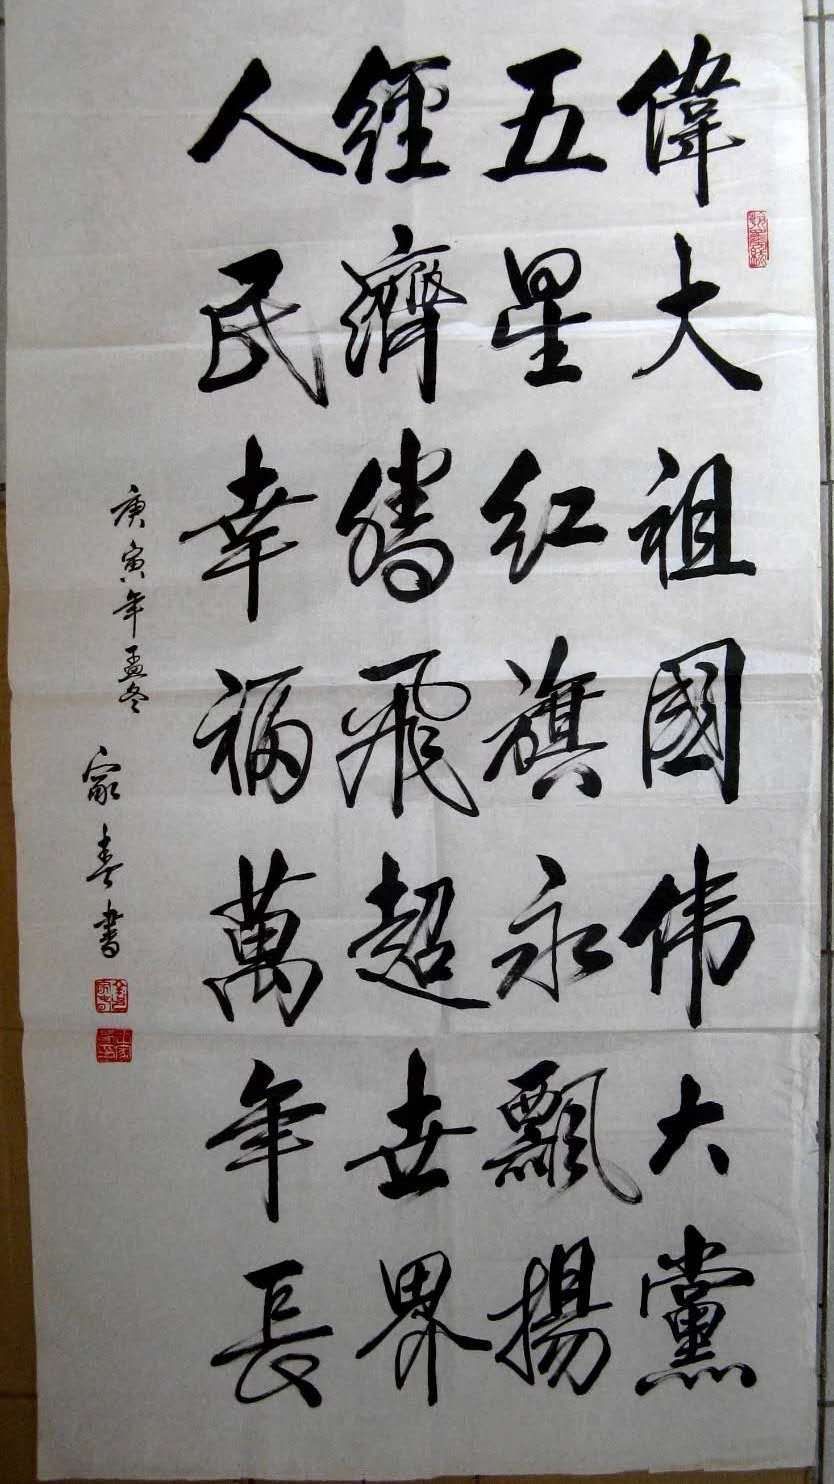 偉大祖國伟大黨
五星红旗永飄揚
經濟騰飛超世界
人民幸福萬年長
庚寅年孟冬
家春書